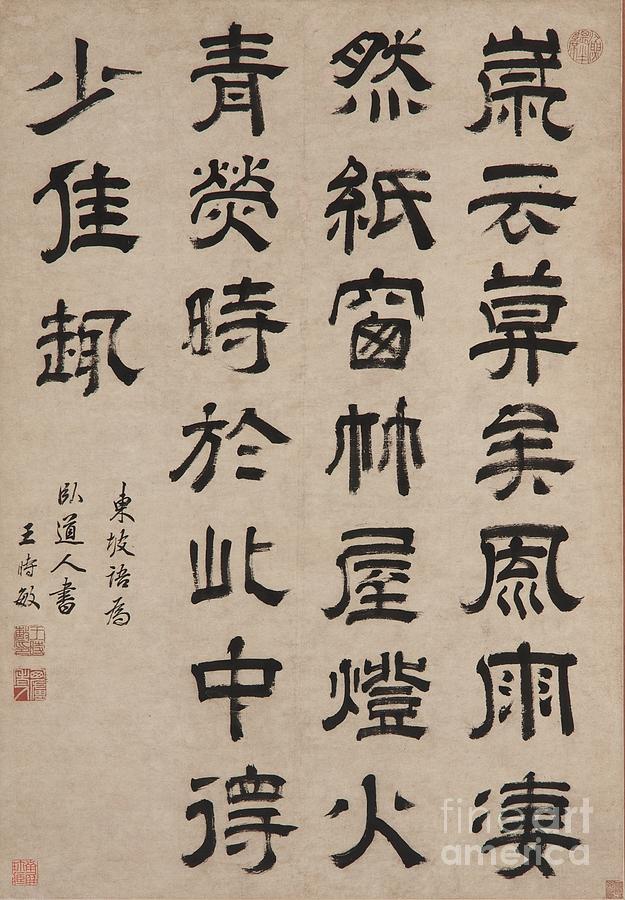 歲云莫矣風雨凄
然紙窗竹屋燈火
青熒時於此中得
少佳趣
東坡語為
臥道人書
王時敏
fineart
america